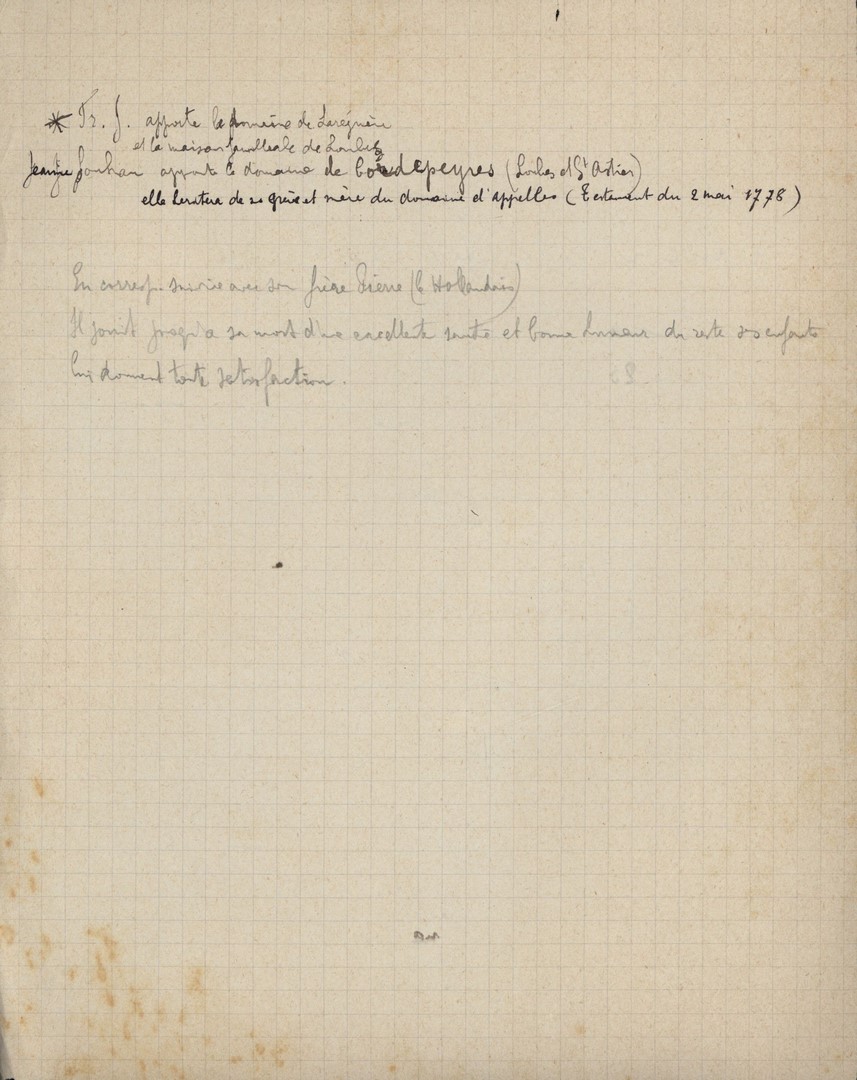 * Fr. J. apporte le domaine de Laregnère
et la maison familiale de Loubes
Jeanne Jouhan apporte le domaine de Cordepeyres (Loubes et St Astier)
elle heritera de ses père et mère du domaine d'appelles (Testament du 2 mai 1778)
En corresp. suivie avec son frère Pierre (le Hollandais)
Il jouit jusqu'a sa mort d'une excellente santé et bonne humeur du reste ses enfants
lui donnent toute satisfaction.